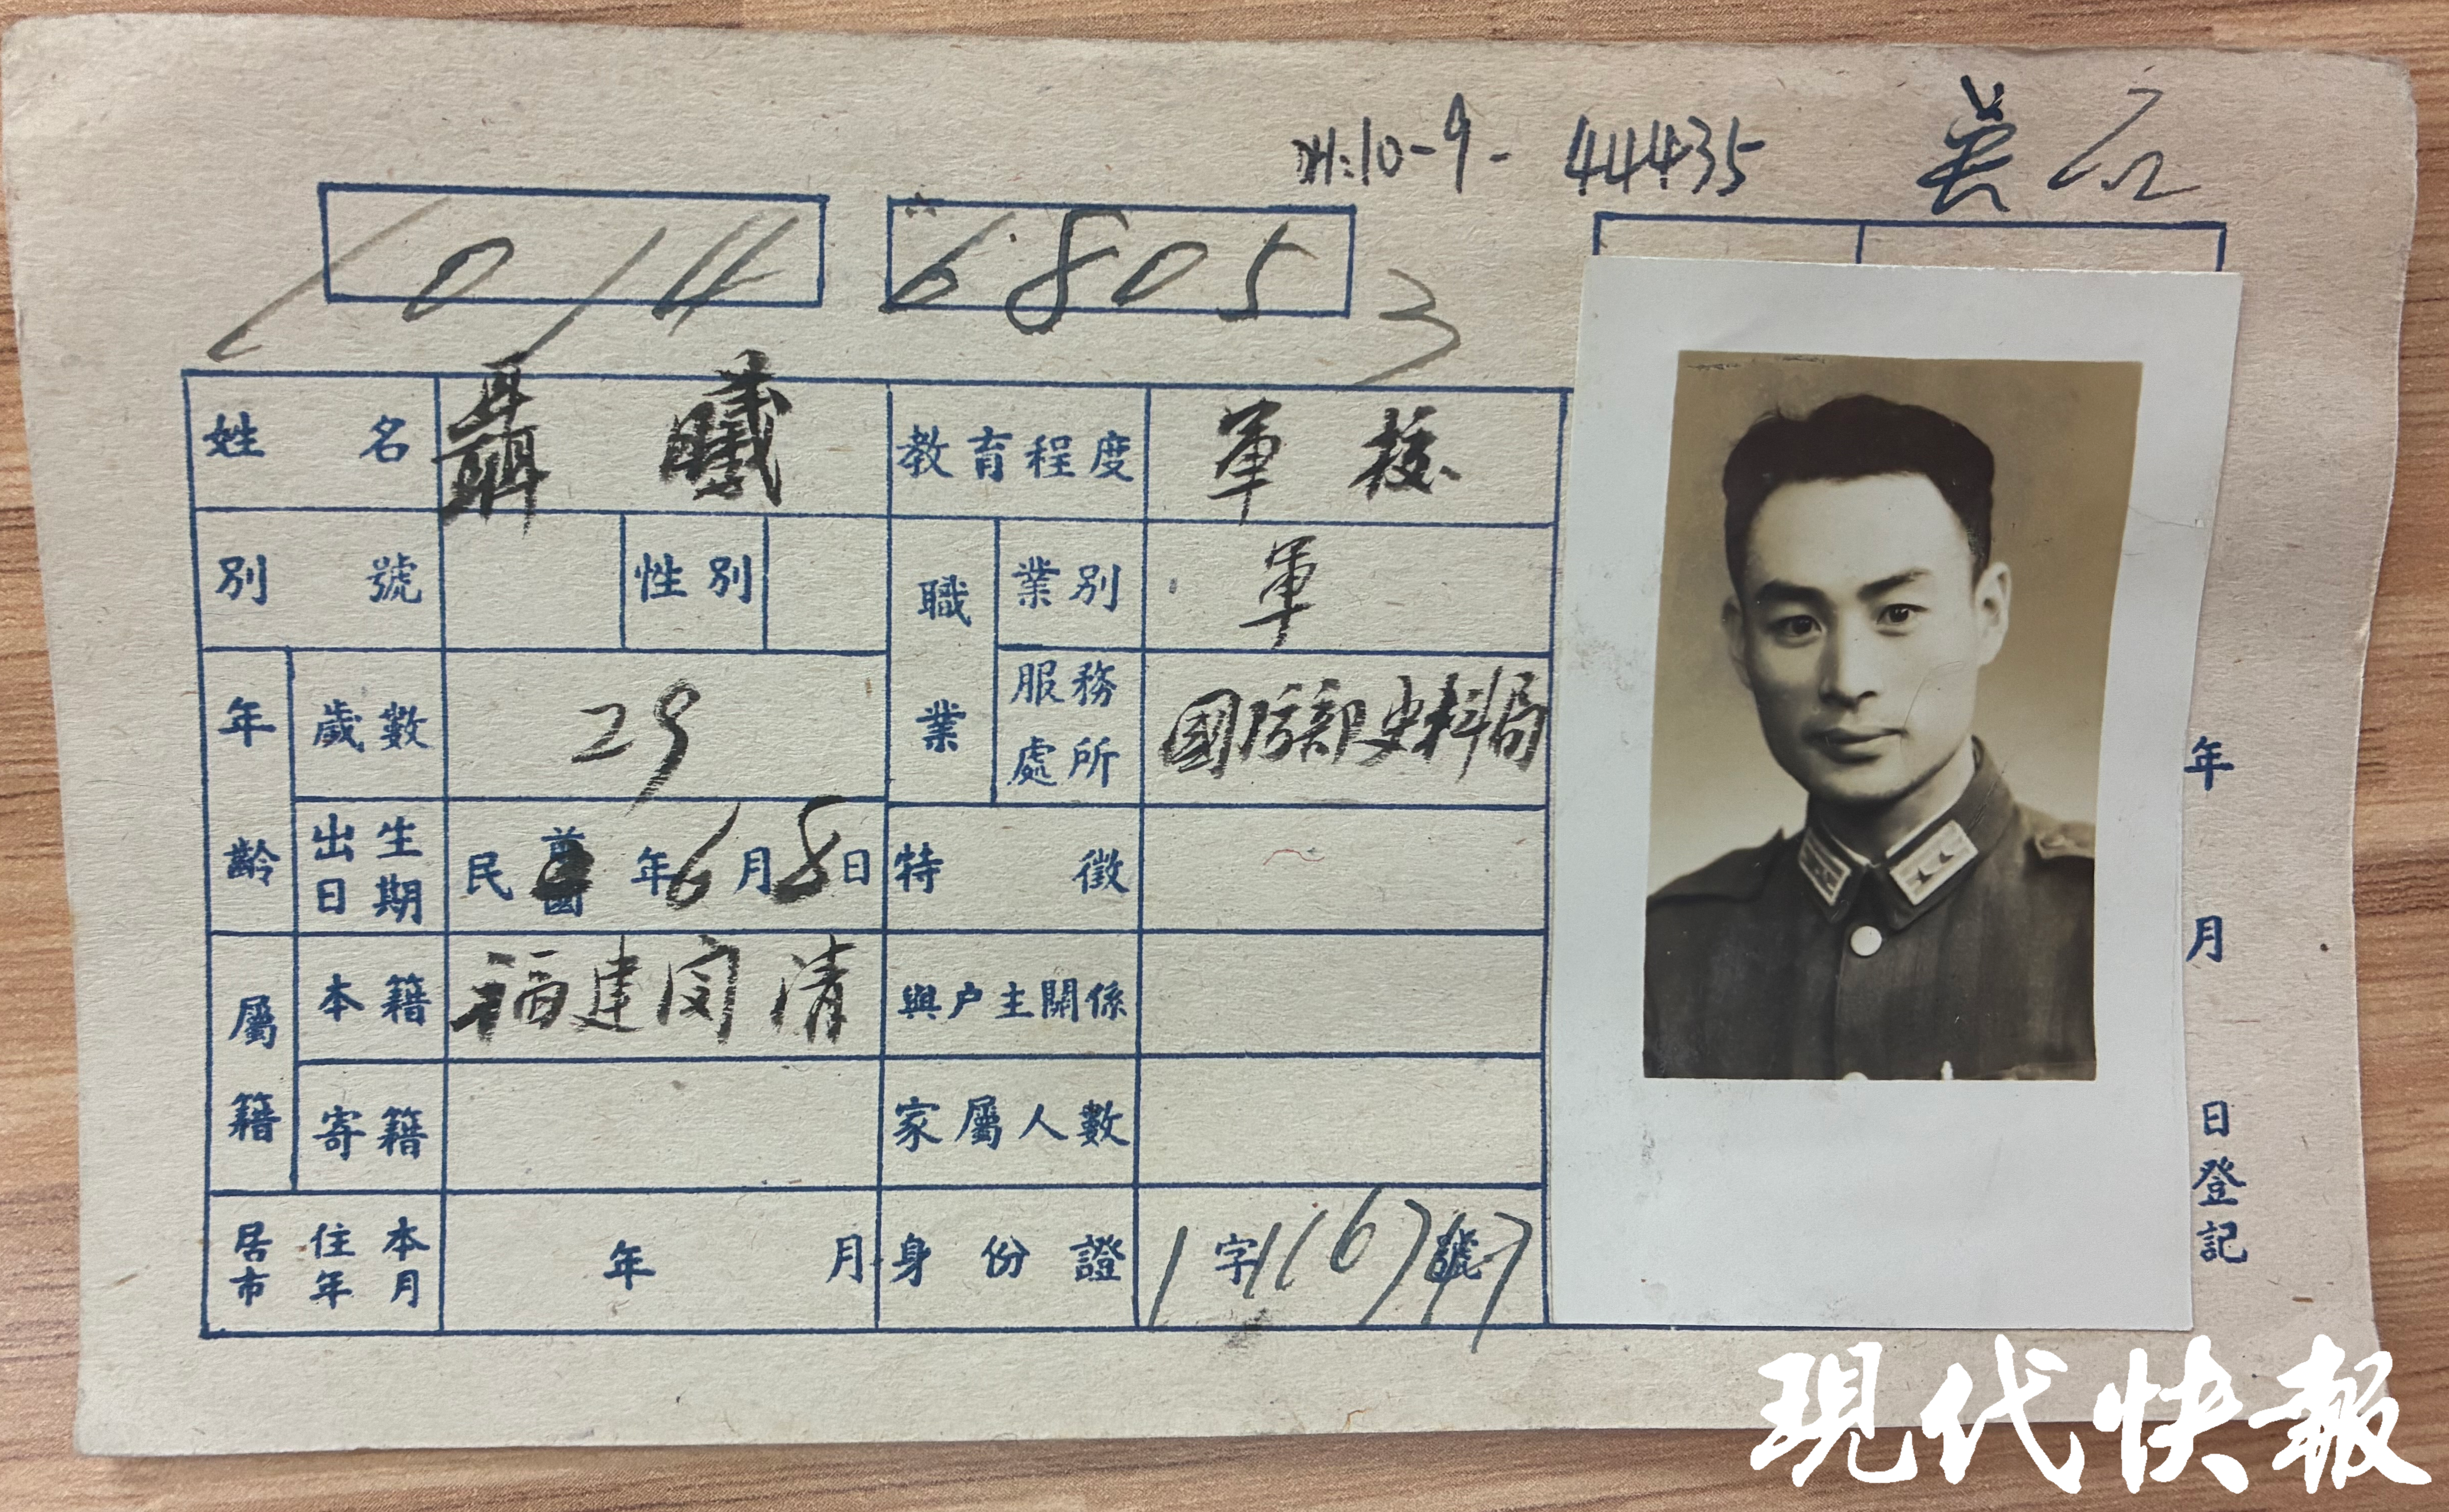 H:10-9- 44435
1014 68053
姓名 聶曦 教育程度 軍校
別號 性別 職業 業別 軍
年齡 歲數 29 服務處所 國防部史料局
出生日期 民前國6年6月8日 特徵
屬籍 本籍 福建閩清 與戶主關係
寄籍 家屬人數
居住本市年月 年 月 身份證 1字116747號
年 月 日登記
現代快報